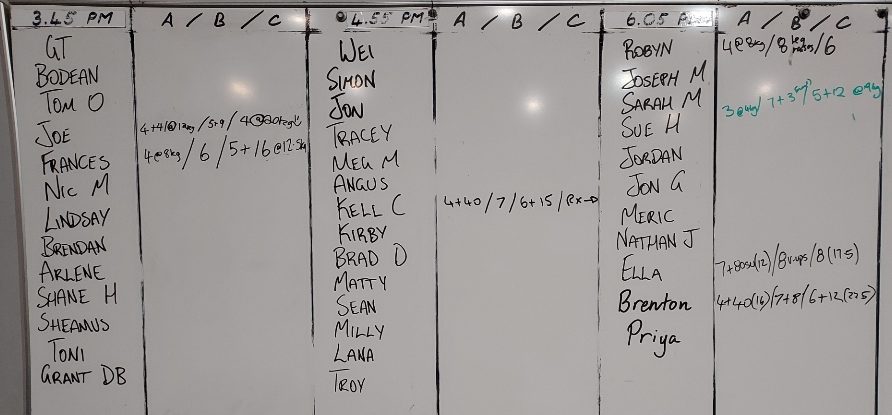 3.45 PM A / B / C
GT
BODEAN
TOM O
JOE 4+4/@12kg / 5+9 / 4@20kg
FRANCES 4@8kg / 6 / 5+16@12.5kg
NIC M
LINDSAY
BRENDAN
ARLENE
SHANE H
SHEAMUS
TONI
GRANT DB
4.55 PM A / B / C
WEI
SIMON
JON
TRACEY
MEG M
ANGUS
KELL C 4+40 / 7 / 6+15 / RX
KIRBY
BRAD D
MATTY
SEAN
MILLY
LANA
TROY
6.05 PM A / B / C
ROBYN 4@8kg / 8 leg raises / 6
JOSEPH M
SARAH M 3@4kg / 7+3 / 5+12 @9kg
SUE H
JORDAN
JON G
MERIC
NATHAN J
ELLA 7+80su(12) / 8 v-ups / 8 (17.5)
Brenton 4+40(16) / 7+8 / 6+12 (22.5)
Priya